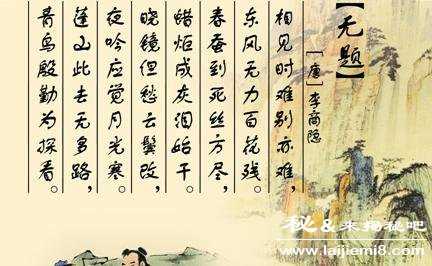 【无题】
[唐]李商隐
相见时难别亦难，
东风无力百花残。
春蚕到死丝方尽，
蜡炬成灰泪始干。
晓镜但愁云鬓改，
夜吟应觉月光寒。
蓬山此去无多路，
青鸟殷勤为探看。
秘&来揭秘吧
www.laijiemi8.com